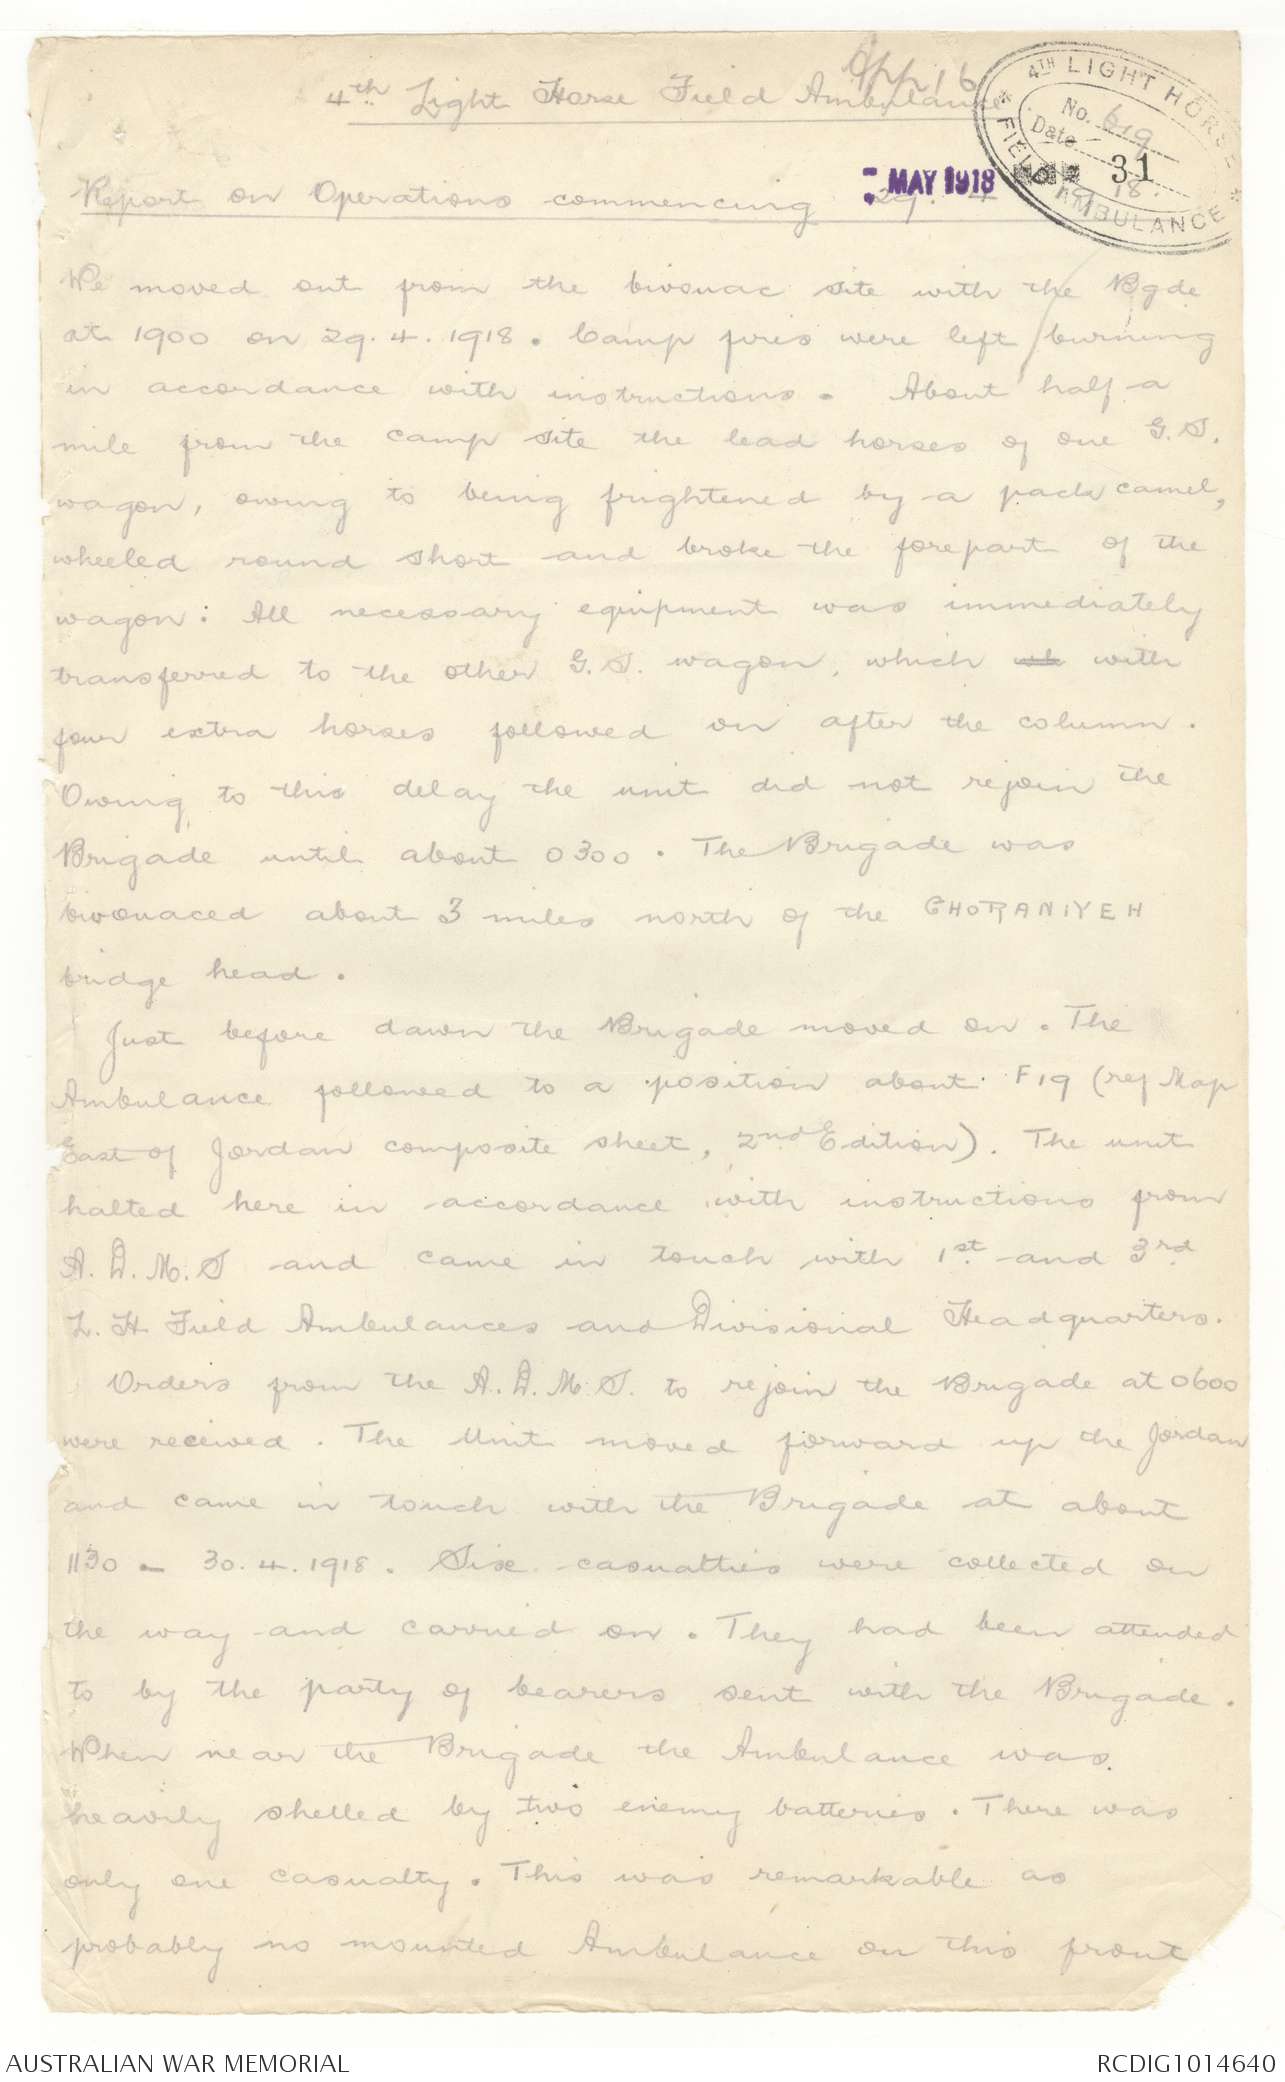 App 16
4th Light Horse Field Ambulance
4TH LIGHT HORSE
FIELD AMBULANCE
No. 619
Date
31
MAY 1918
Report on Operations commencing 29. 4
We moved out from the bivouac site with the Bgde
at 1900 on 29. 4. 1918. Camp fires were left burning
in accordance with instructions. About half a
mile from the camp site the lead horses of one G.S.
wagon, owing to being frightened by a pack camel,
wheeled round short and broke the forepart of the
wagon: All necessary equipment was immediately
transferred to the other G.S. wagon, which wh with
four extra horses followed on after the column.
Owing to this delay the unit did not rejoin the
Brigade until about 0300. The Brigade was
bivouaced about 3 miles north of the GHORANIYEH
bridge head.
Just before dawn the Brigade moved on. The
Ambulance followed to a position about F19 (ref Map
East of Jordan composite sheet, 2nd Edition). The unit
halted here in accordance with instructions from
A. D. M. S and came in touch with 1st and 3rd
L. H Field Ambulances and Divisional Headquarters.
Orders from the A. D. M. S. to rejoin the Brigade at 0600
were received. The Unit moved forward up the Jordan
and came in touch with the Brigade at about
1130 - 30. 4. 1918. Six casualties were collected on
the way and carried on. They had been attended
to by the party of bearers sent with the Brigade.
When near the Brigade the Ambulance was
heavily shelled by two enemy batteries. There was
only one casualty. This was remarkable as
probably no mounted Ambulance on this front
AUSTRALIAN WAR MEMORIAL
RCDIG1014640